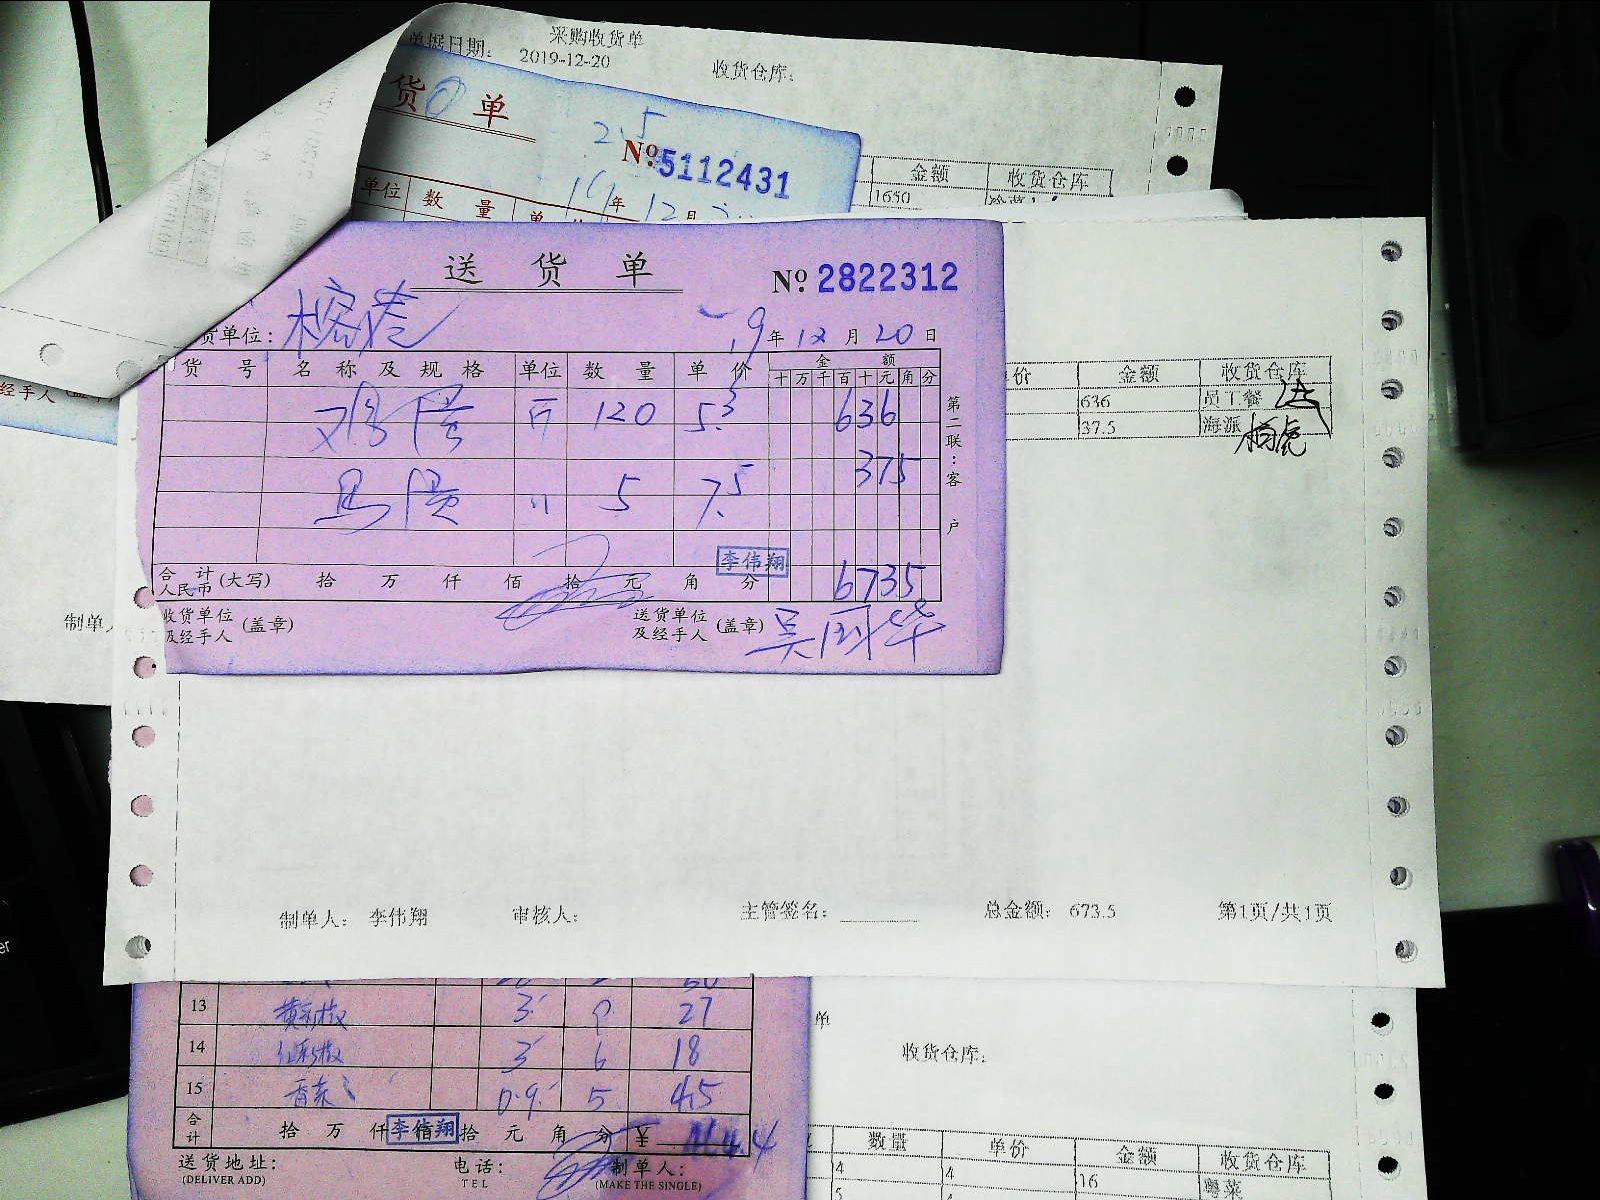 采购收货单
单据日期： 2019-12-20 收货仓库：
货 单
2.5
№ 5112431
年 12 月
单位 数 量 单
金额 收货仓库
1650
送 货 单 № 2822312
货单位：
19 年 12 月 20 日
货 号 名 称 及 规 格 单位 数 量 单 价 金 额
十 万 千 百 十 元 角 分
鸡蛋 斤 120 5.3 636
375
5 7.5
第二联：客户
李伟翔
合 计 人民币 (大写) 拾 万 仟 佰 拾 元 角 分 6735
收货单位及经手人 (盖章) 送货单位及经手人 (盖章) 吴国华
价 金额 收货仓库
636 员工餐
37.5 海派
经手人
制单人
制单人： 李伟翔 审核人： 主管签名： 总金额： 673.5 第1页/共1页
13 3 9 27
14 3 6 18
15 0.9 5 4.5
合计 拾 万 仟 佰 拾 元 角 分 ¥
李伟翔
送货地址： 电话： 制单人：
(DELIVER ADD) TEL (MAKE THE SINGLE)
单
收货仓库：
数量 单价 金额 收货仓库
4 4 16 粤菜
5